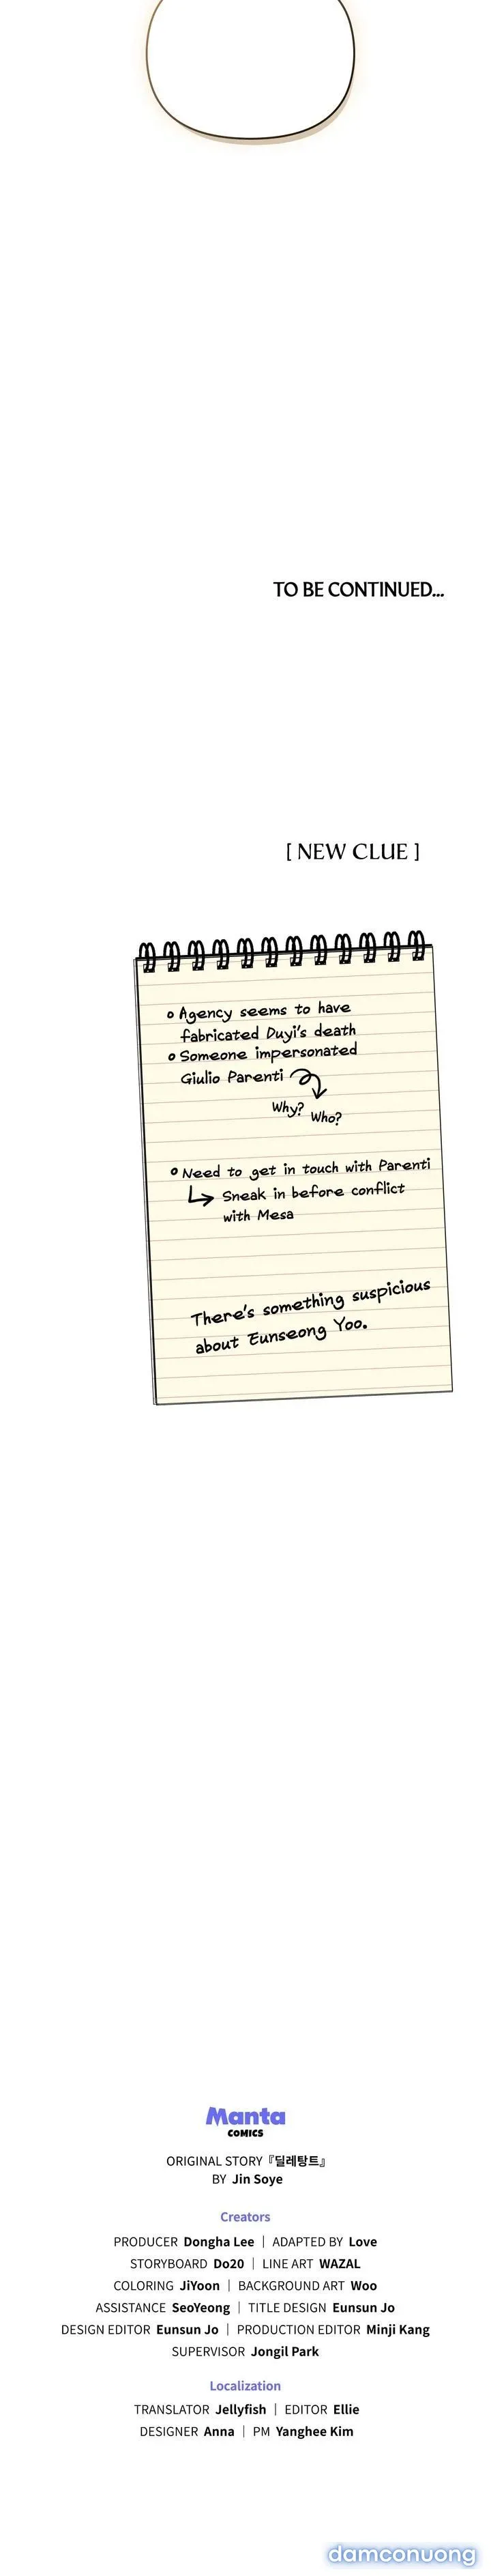 TO BE CONTINUED...
[ NEW CLUE ]
Agency seems to have
fabricated Duyi's death
Someone impersonated
Giulio Parenti
Why? Who?
Need to get in touch with Parenti
Sneak in before conflict
with Mesa
There's something suspicious
about Eunseong Yoo.
Manta
COMICS
ORIGINAL STORY『딜레탕트』
BY Jin Soye
Creators
PRODUCER Dongha Lee | ADAPTED BY Love
STORYBOARD Do20 | LINE ART WAZAL
COLORING JiYoon | BACKGROUND ART Woo
ASSISTANCE SeoYeong | TITLE DESIGN Eunsun Jo
DESIGN EDITOR Eunsun Jo | PRODUCTION EDITOR Minji Kang
SUPERVISOR Jongil Park
Localization
TRANSLATOR Jellyfish | EDITOR Ellie
DESIGNER Anna | PM Yanghee Kim
damconuong